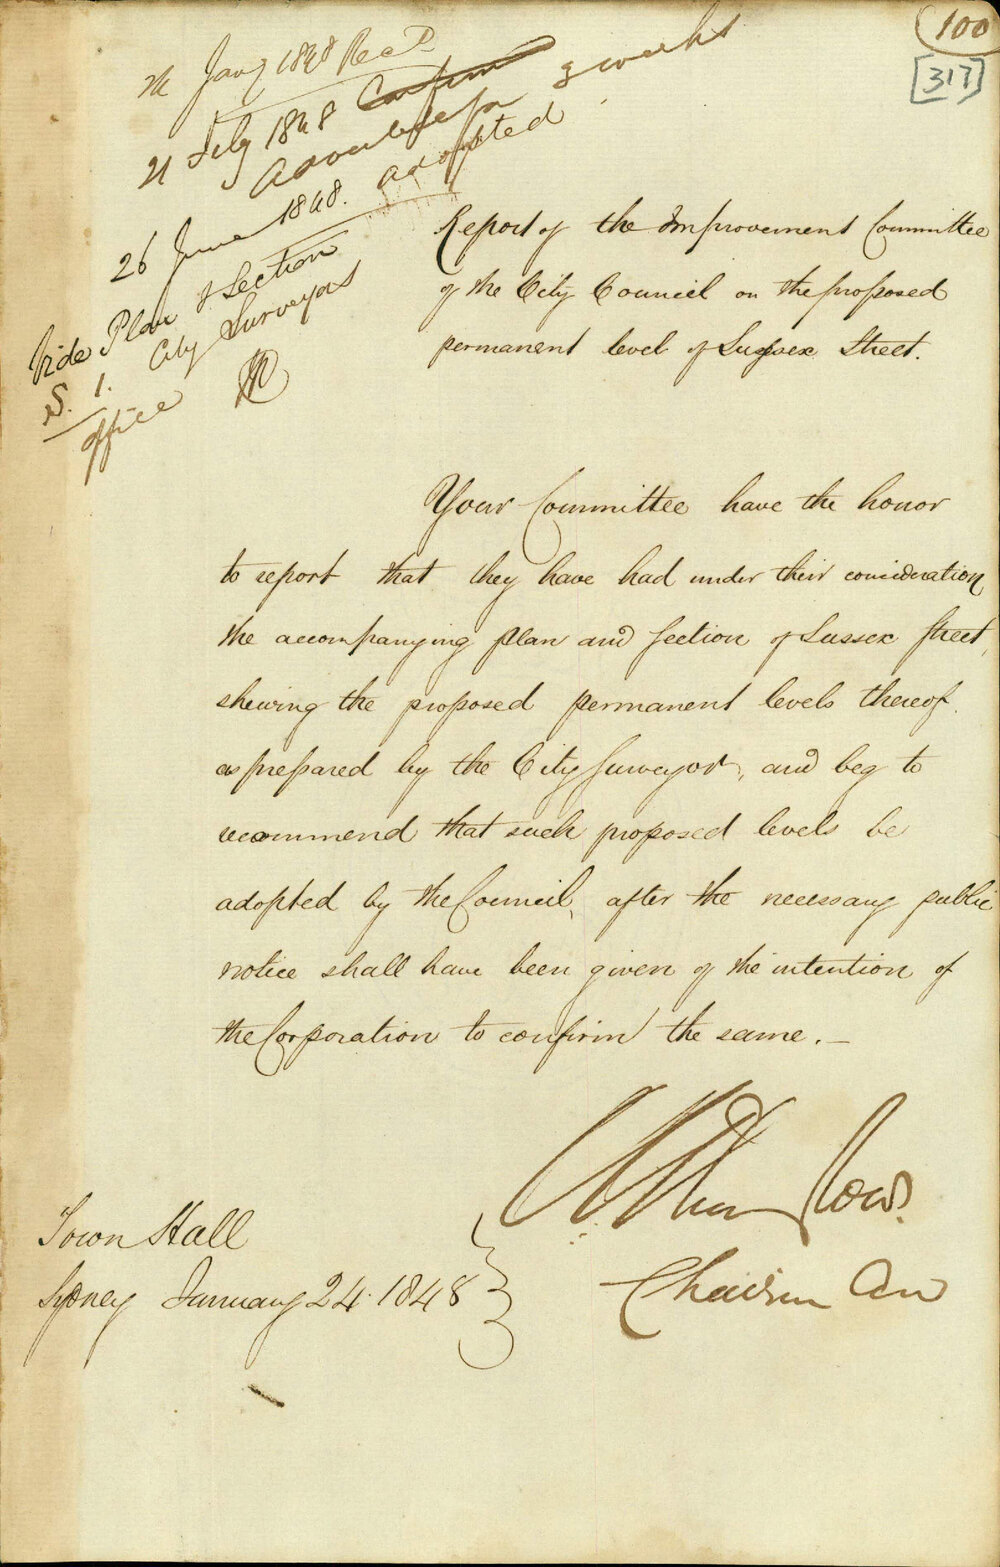 100
[317]
24 Jany 1848 Recd
21 Feby 1848 Confirmd
Advertise for 3 weeks
26 June 1848. adopted
Vide Plan & Section
S. 1. City Surveyors
office
Report of the Improvement Committee
of the City Council on the proposed
permanent level of Sussex Street.
Your Committee have the honor
to report that they have had under their consideration
the accompanying plan and section of Sussex Street,
shewing the proposed permanent levels thereof
as prepared by the City Surveyor, and beg to
recommend that such proposed levels be
adopted by the Council, after the necessary public
notice shall have been given of the intention of
the Corporation to confirm the same. —
Chairman
Town Hall
Sydney January 24. 1848